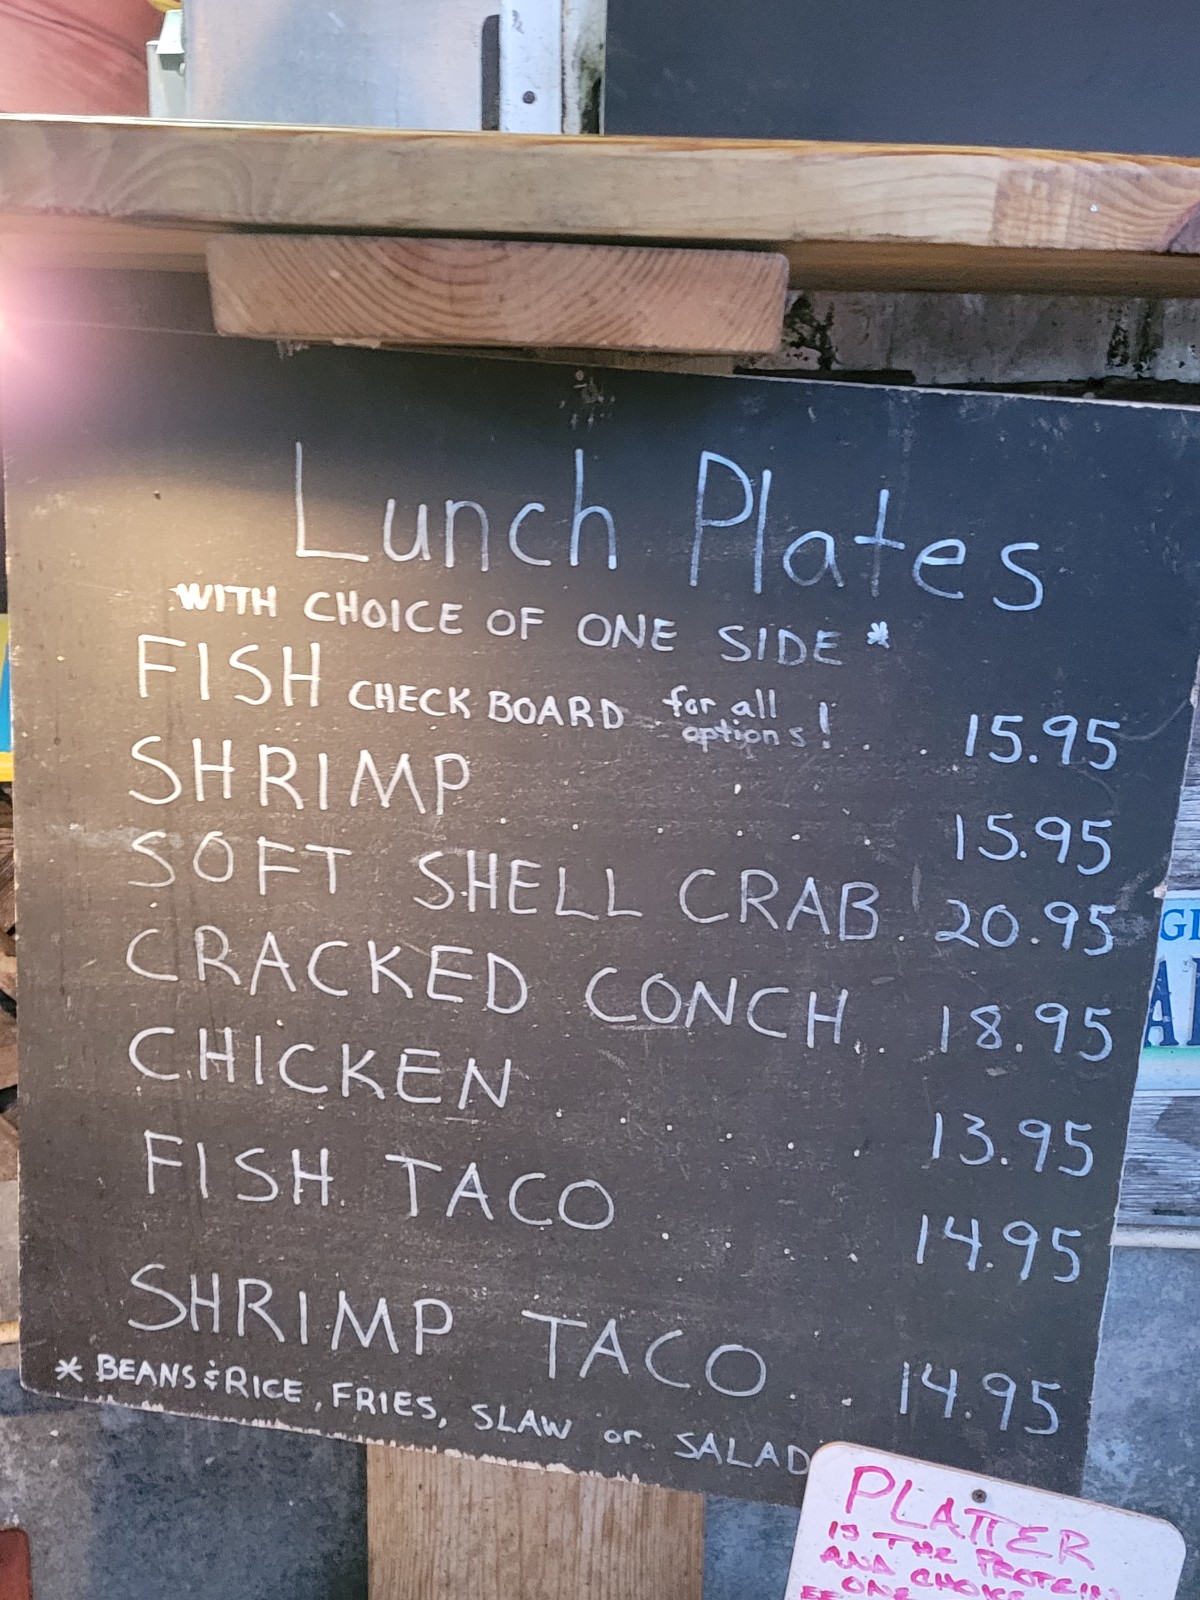 Lunch Plates
WITH CHOICE OF ONE SIDE *
FISH CHECK BOARD for all options! . . 15.95
SHRIMP . . . . . 15.95
SOFT SHELL CRAB . 20.95
CRACKED CONCH . . 18.95
CHICKEN . . . . . 13.95
FISH TACO . . . . 14.95
SHRIMP TACO . . 14.95
* BEANS & RICE, FRIES, SLAW or SALAD
PLATTER
IS THE PROTEIN
AND CHOICE
ONE